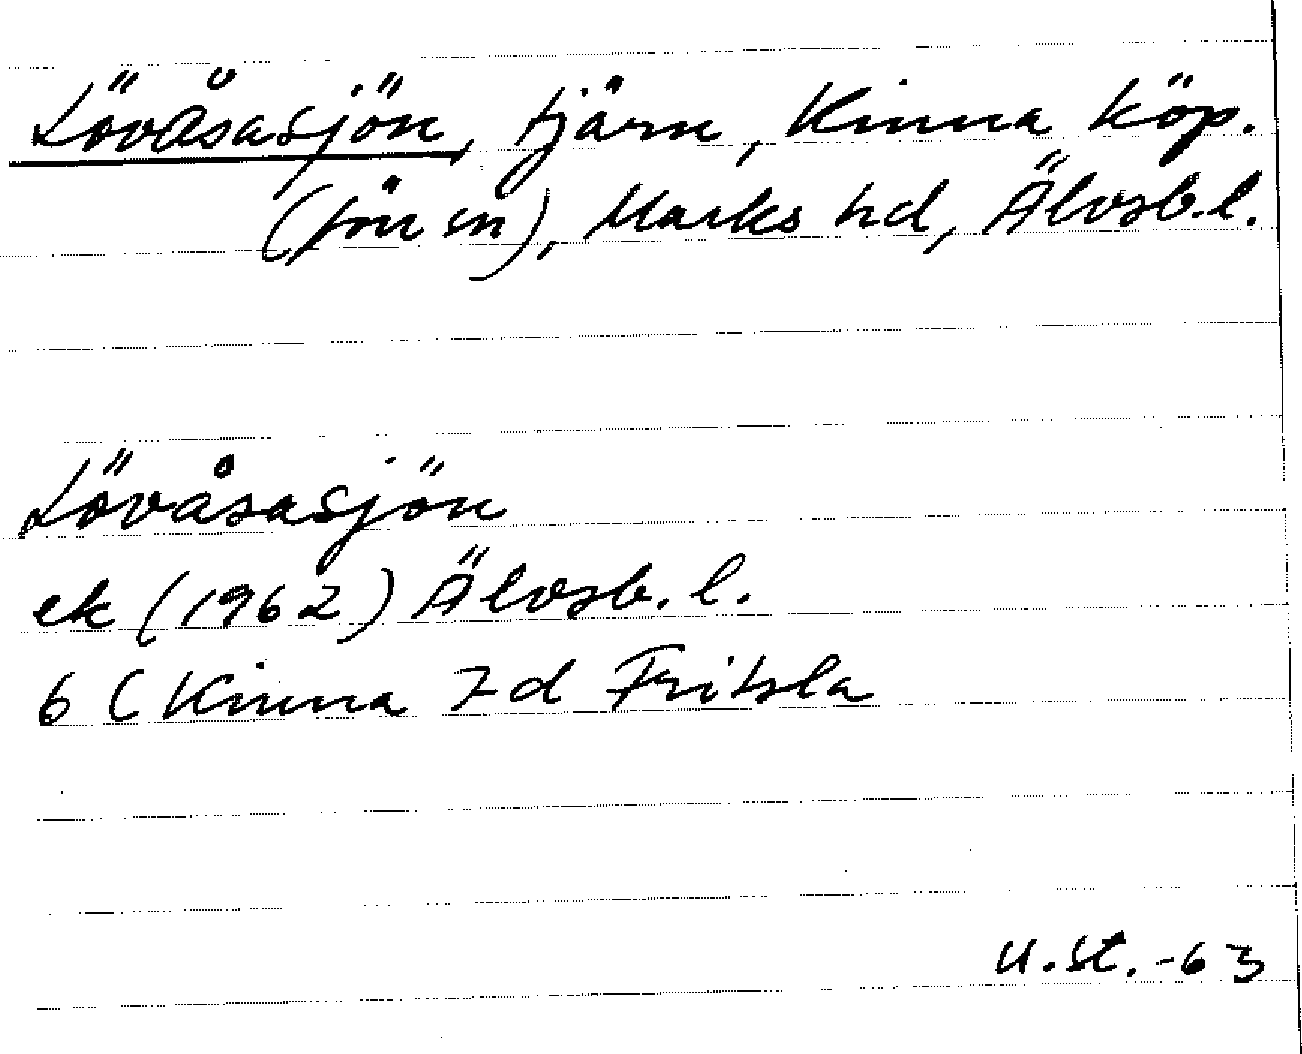 Lövåsasjön, tjärn, Kinna köp.
(förs n), Marks hd, Älvsb. l.
Lövåsasjön
ek (1962) Älvsb. l.
6 C Kinna 7d Fritsla
U.St. -63